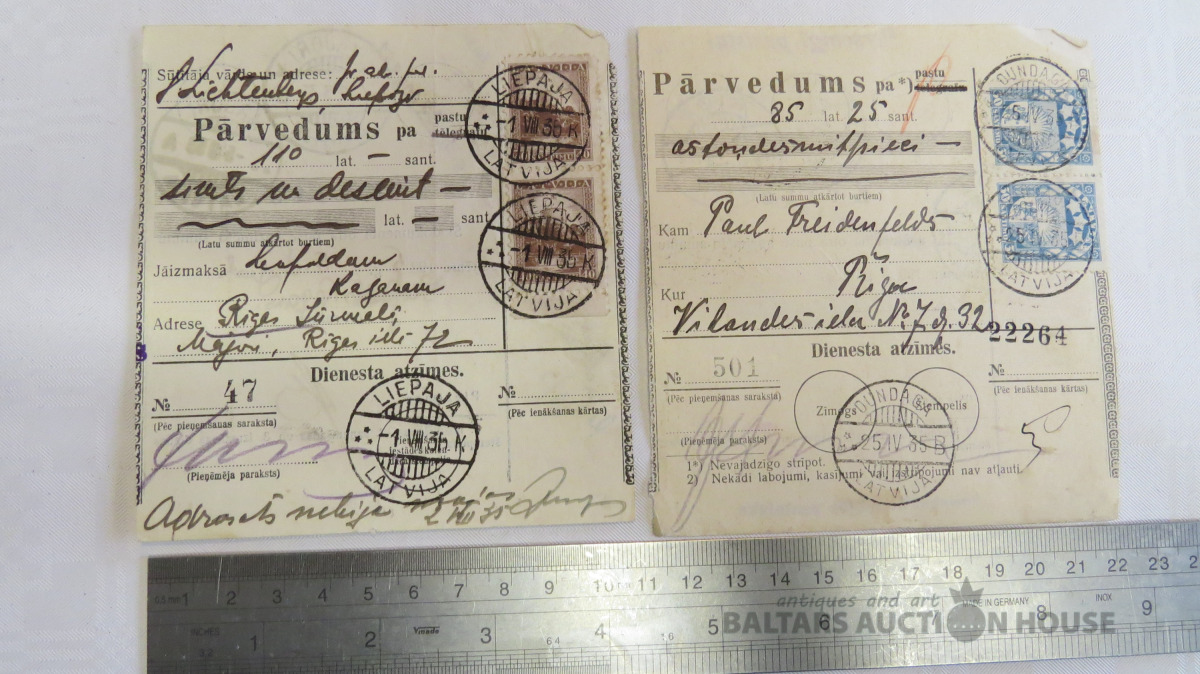 Sūtītāja vārds un adrese:
Pārvedums pa pastu
telegrafu
110 lat. — sant.
simts un desmit —
lat. — sant.
(Latu summu atkārtot burtiem)
Jāizmaksā Leopoldam
Kaganam
Adrese Rīgas Jūrmalā
Majori, Rīgas ielā 72
Dienesta atzīmes.
№ 47
(Pēc pieņemšanas saraksta)
№
(Pēc ienākšanas kārtas)
(Pieņēmēja paraksts)
Adresāts nebija
LIEPĀJA
-1 VIII 35 K
LATVIJA
LIEPĀJA
-1 VIII 35 K
LATVIJA
LIEPĀJA
-1 VIII 35 K
LATVIJA
Pārvedums pa*) pastu
telegrafu
85 lat. 25 sant.
astoņdesmitpieci —
(Latu summu atkārtot burtiem)
Kam Paul Freidenfelds
Kur Rīga
Vilandes iela № 7 dz. 32
22264
Dienesta atzīmes.
№ 501
(Pēc pieņemšanas saraksta)
№
(Pēc ienākšanas kārtas)
Zīmogs
(Pieņēmēja paraksts)
1*) Nevajadzīgo stripot.
2) Nekādi labojumi, kasījumi vai izstripojumi nav atļauti.
DUNDAGA
LATVIJA
LATVIJA
DUNDAGA
25 IV 35 B
LATVIJA
1 2 3 4 5 6 7 8 9 10 11 12 13 14 15 16 17 18 19 20 21 22 23
MADE IN GERMANY
INOX
INCHES
1 2 3 4 5 6 8 9
antiques and art
BALTARS AUCTION HOUSE